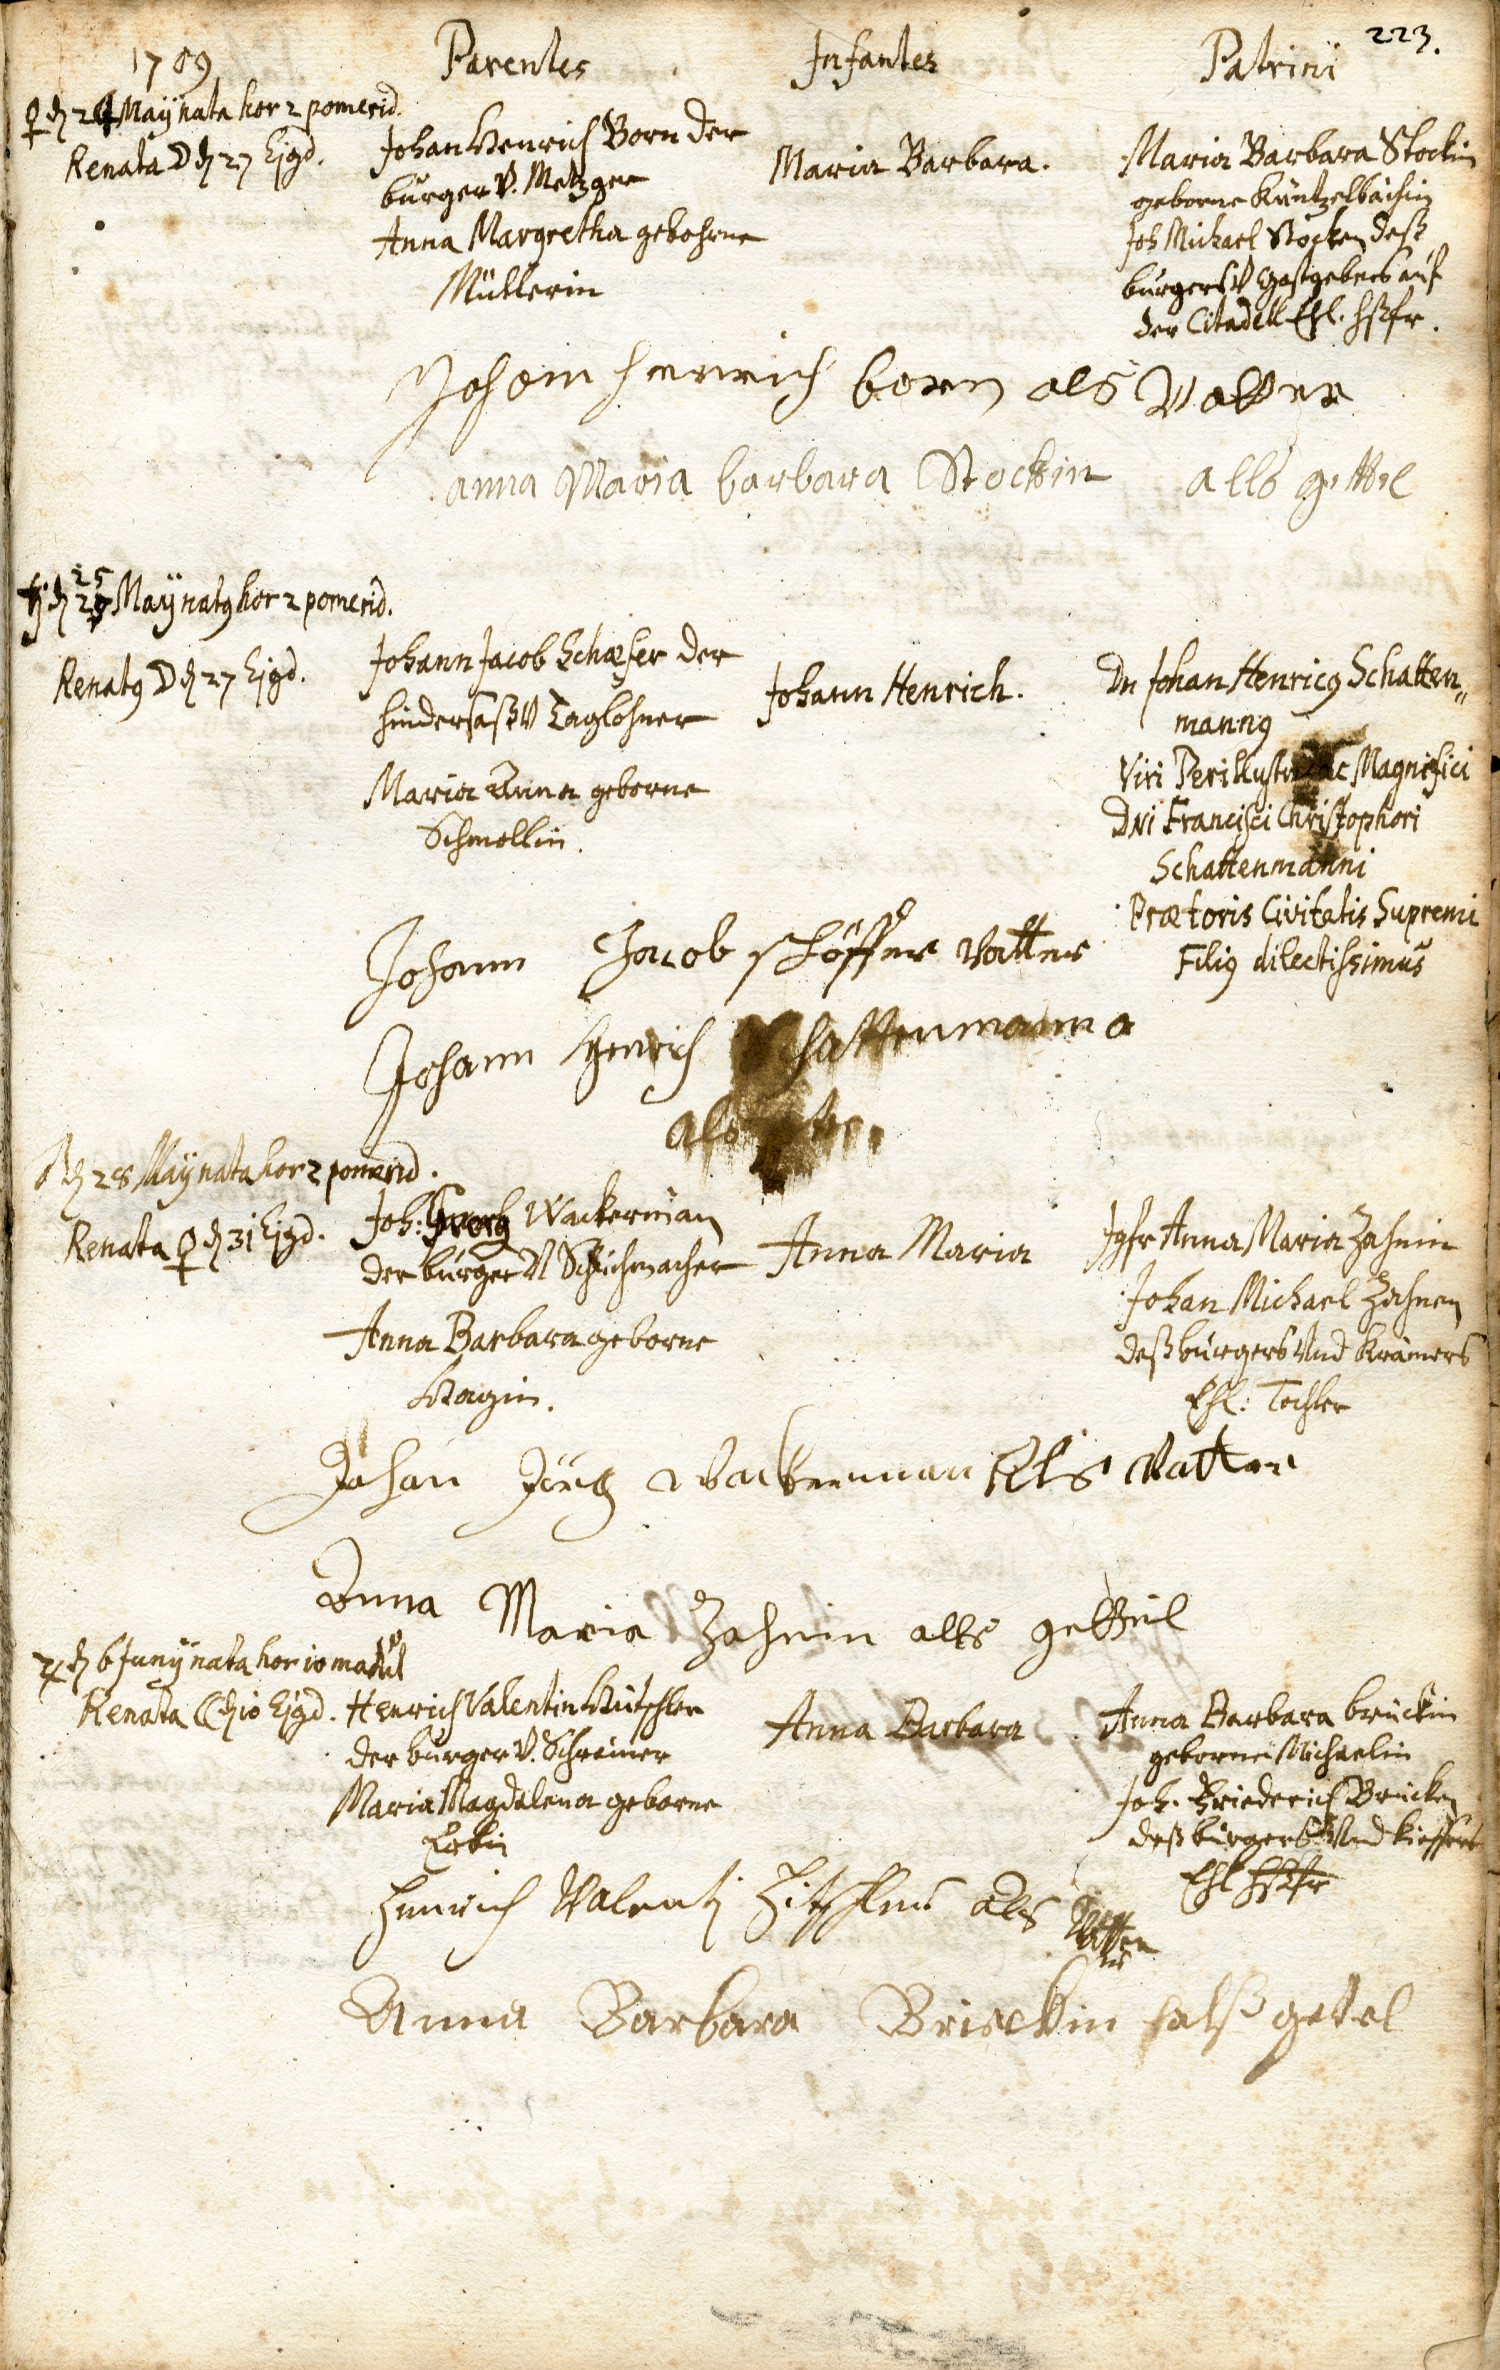 223.
1709 Parentes Infantes Patrini
♀ d 24 Maÿ nata hor 2 pomerid.
Renata ☽ d 27 Ejgd.
Johan Henrich Born der
burger V. Metzger
Anna Margretha gebohrne
Müllerin
Maria Barbara.
Maria Barbara Stockin
geborne Küntzelbächin
Joh Michael Stocken deß
burgers V Gastgebers auf
der Citadell Ehl. hßfr.
Johann Henrich born als Vatter
anna Maria barbara Stockin alls gettel
♄ d 25 Maÿ natg hor 2 pomerid.
Renatg ☽ d 27 Ejgd.
Johann Jacob Schæfer der
hindersaß V Taglohner
Maria Anna geborne
Schmollin.
Johann Henrich.
Dn Johan Henricg Schatten„
manng
Viri Perillustris ac Magnifici
Dni Francisci Christophori
Schattenmanni
Prætoris Civitatis Supremi
Filig dilectissimus
Johann Jacob schöffer Vatter
Johann Henrich Schattenmann a
als
♂ d 28 Maÿ nata hor 2 pomerid.
Renata ♀ d 31 Ejgd.
Joh: Georg Wackerman
der burger V Schuhmacher
Anna Barbara geborne
Hagin.
Anna Maria
Jgfr Anna Maria Zahnin
Johan Michael Zahnen
deß burgers Und Krämers
Ehl: Tochter
Johan Jörg Wackerman Als Vatter
Anna Maria Zahnin alls gettel
♃ d 6 Junÿ nata hor 10 matut
Renata ☾ d 10 Ejgd.
Henrich Valentin Hütschler
der burger V. Schreiner
Maria Magdalena geborne
Erbin
Anna Barbara
Anna Barbara brückin
geborne Michaelin
Joh. Friederich Brücken
deß burgers Und kieffers
Ehl hßfr
Henrich Valentj Hitschler als Vatter
Anna Barbara Brisckin halß getel